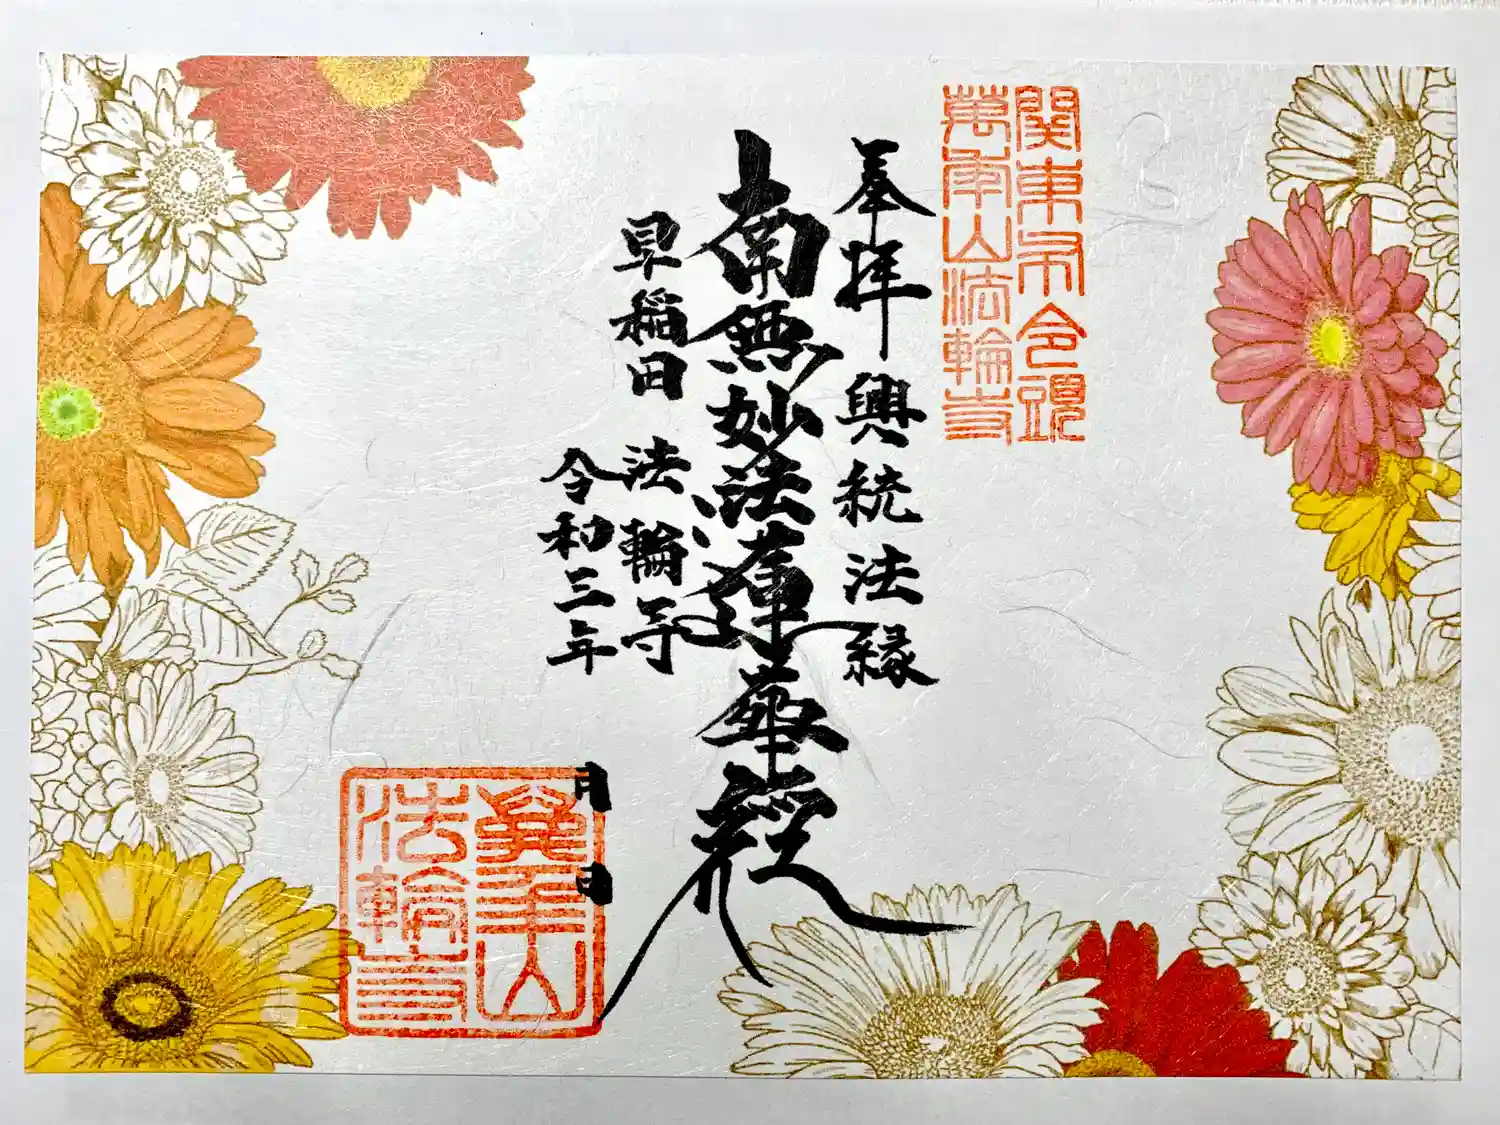 関東布令頭
萬年山法輪寺
奉拝 興統法縁
南無妙法蓮華経
早稲田 法輪寺
令和三年 月 日
萬年山
法輪寺